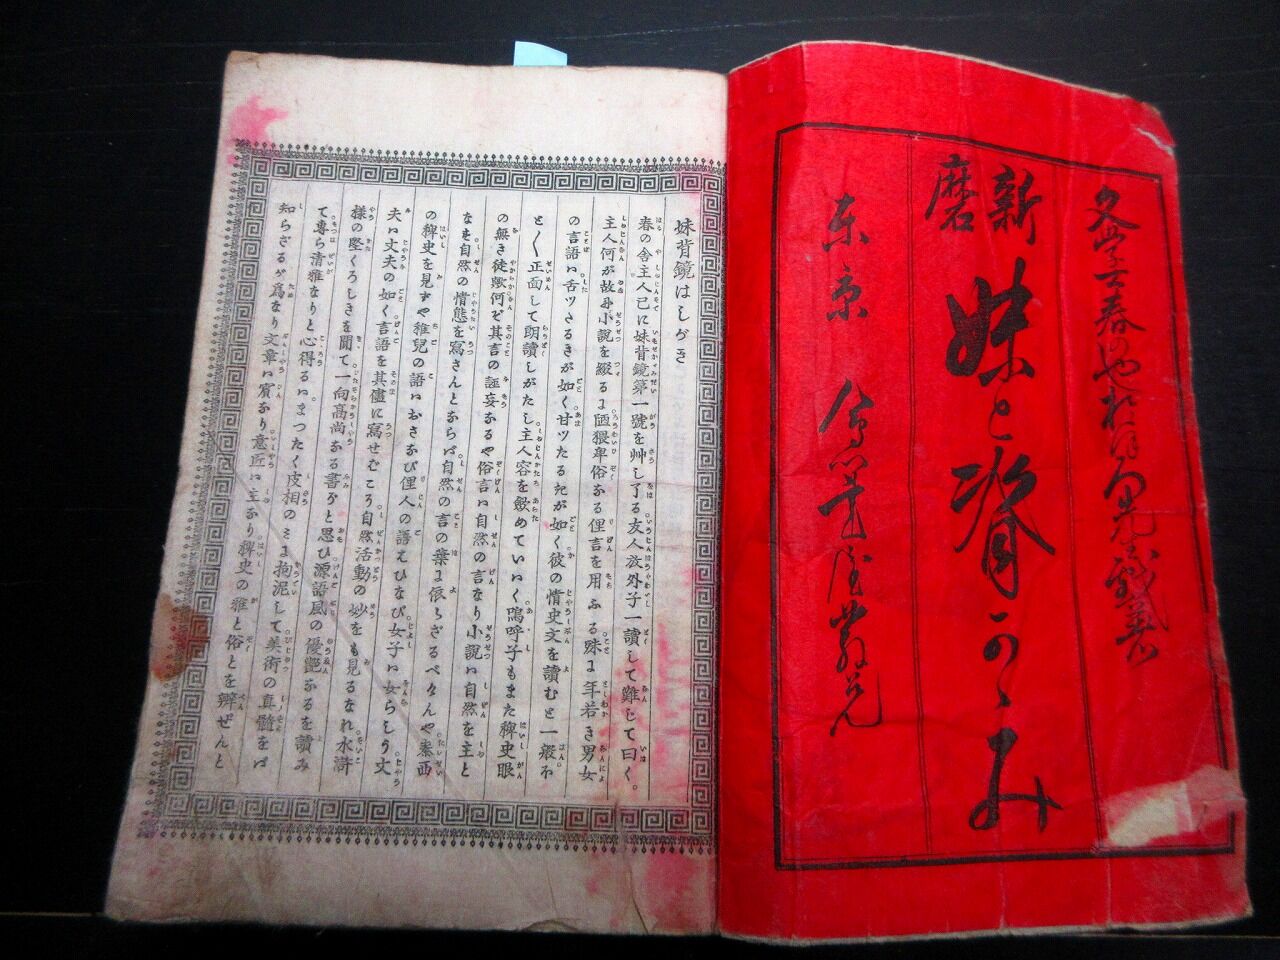 文学士春のやおぼろ先生戯著
新磨
妹と背かゞみ
東京 會心書屋發兌
妹背鏡はしがき
春の舎主人已に妹背鏡第一號を艸し了る友人放外子一讀して難じて曰く。
主人何が故に小説を綴るに陋猥卑俗なる俚言を用ふる殊に年若き男女
の言語ハ舌ツさるきが如く甘ツたるたが如く彼の情史文を讀むと一般不
とく正面して朗讀しがたし主人容を斂めていハく嗚呼子もまた稗史眼
の無き徒歟何ぞ其言の誣妄なるや俗言ハ自然の言なり小説ハ自然を主と
なす自然の情態を寫さんとならバ自然の言の葉に依らざるべけんや泰西
の稗史を見ずや稚兒の語ハおさなび俚人の語ハひなび女子ハ女らしう丈
夫ハ丈夫の如く言語を其儘に寫せばこそ自然活動の妙をも見るなれ水滸
様の堅くろしきを聞て一向高尚なる書ぞと思ひ源語風の優艶なるを讀み
て專ら清雅なりと心得るハまつたく皮相のミに拘泥して美術の真髓をバ
知らざるが爲なり文章ハ賓なり意匠ハ主なり稗史の雅と俗とを辨ぜんと